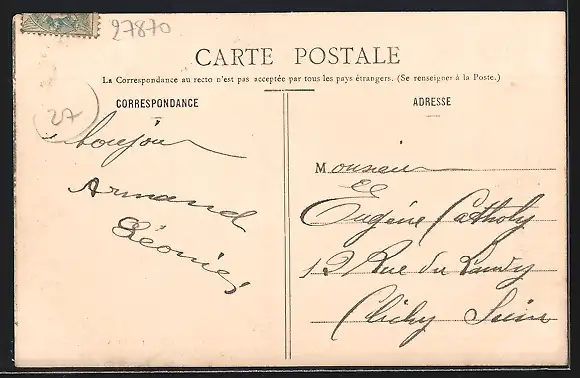 27870
CARTE POSTALE
La Correspondance au recto n'est pas acceptée par tous les pays étrangers. (Se renseigner à la Poste.)
CORRESPONDANCE
ADRESSE
27
Armand
Léonie
Monsieur
Eugène Catholy
12 Rue du
Clichy Seine